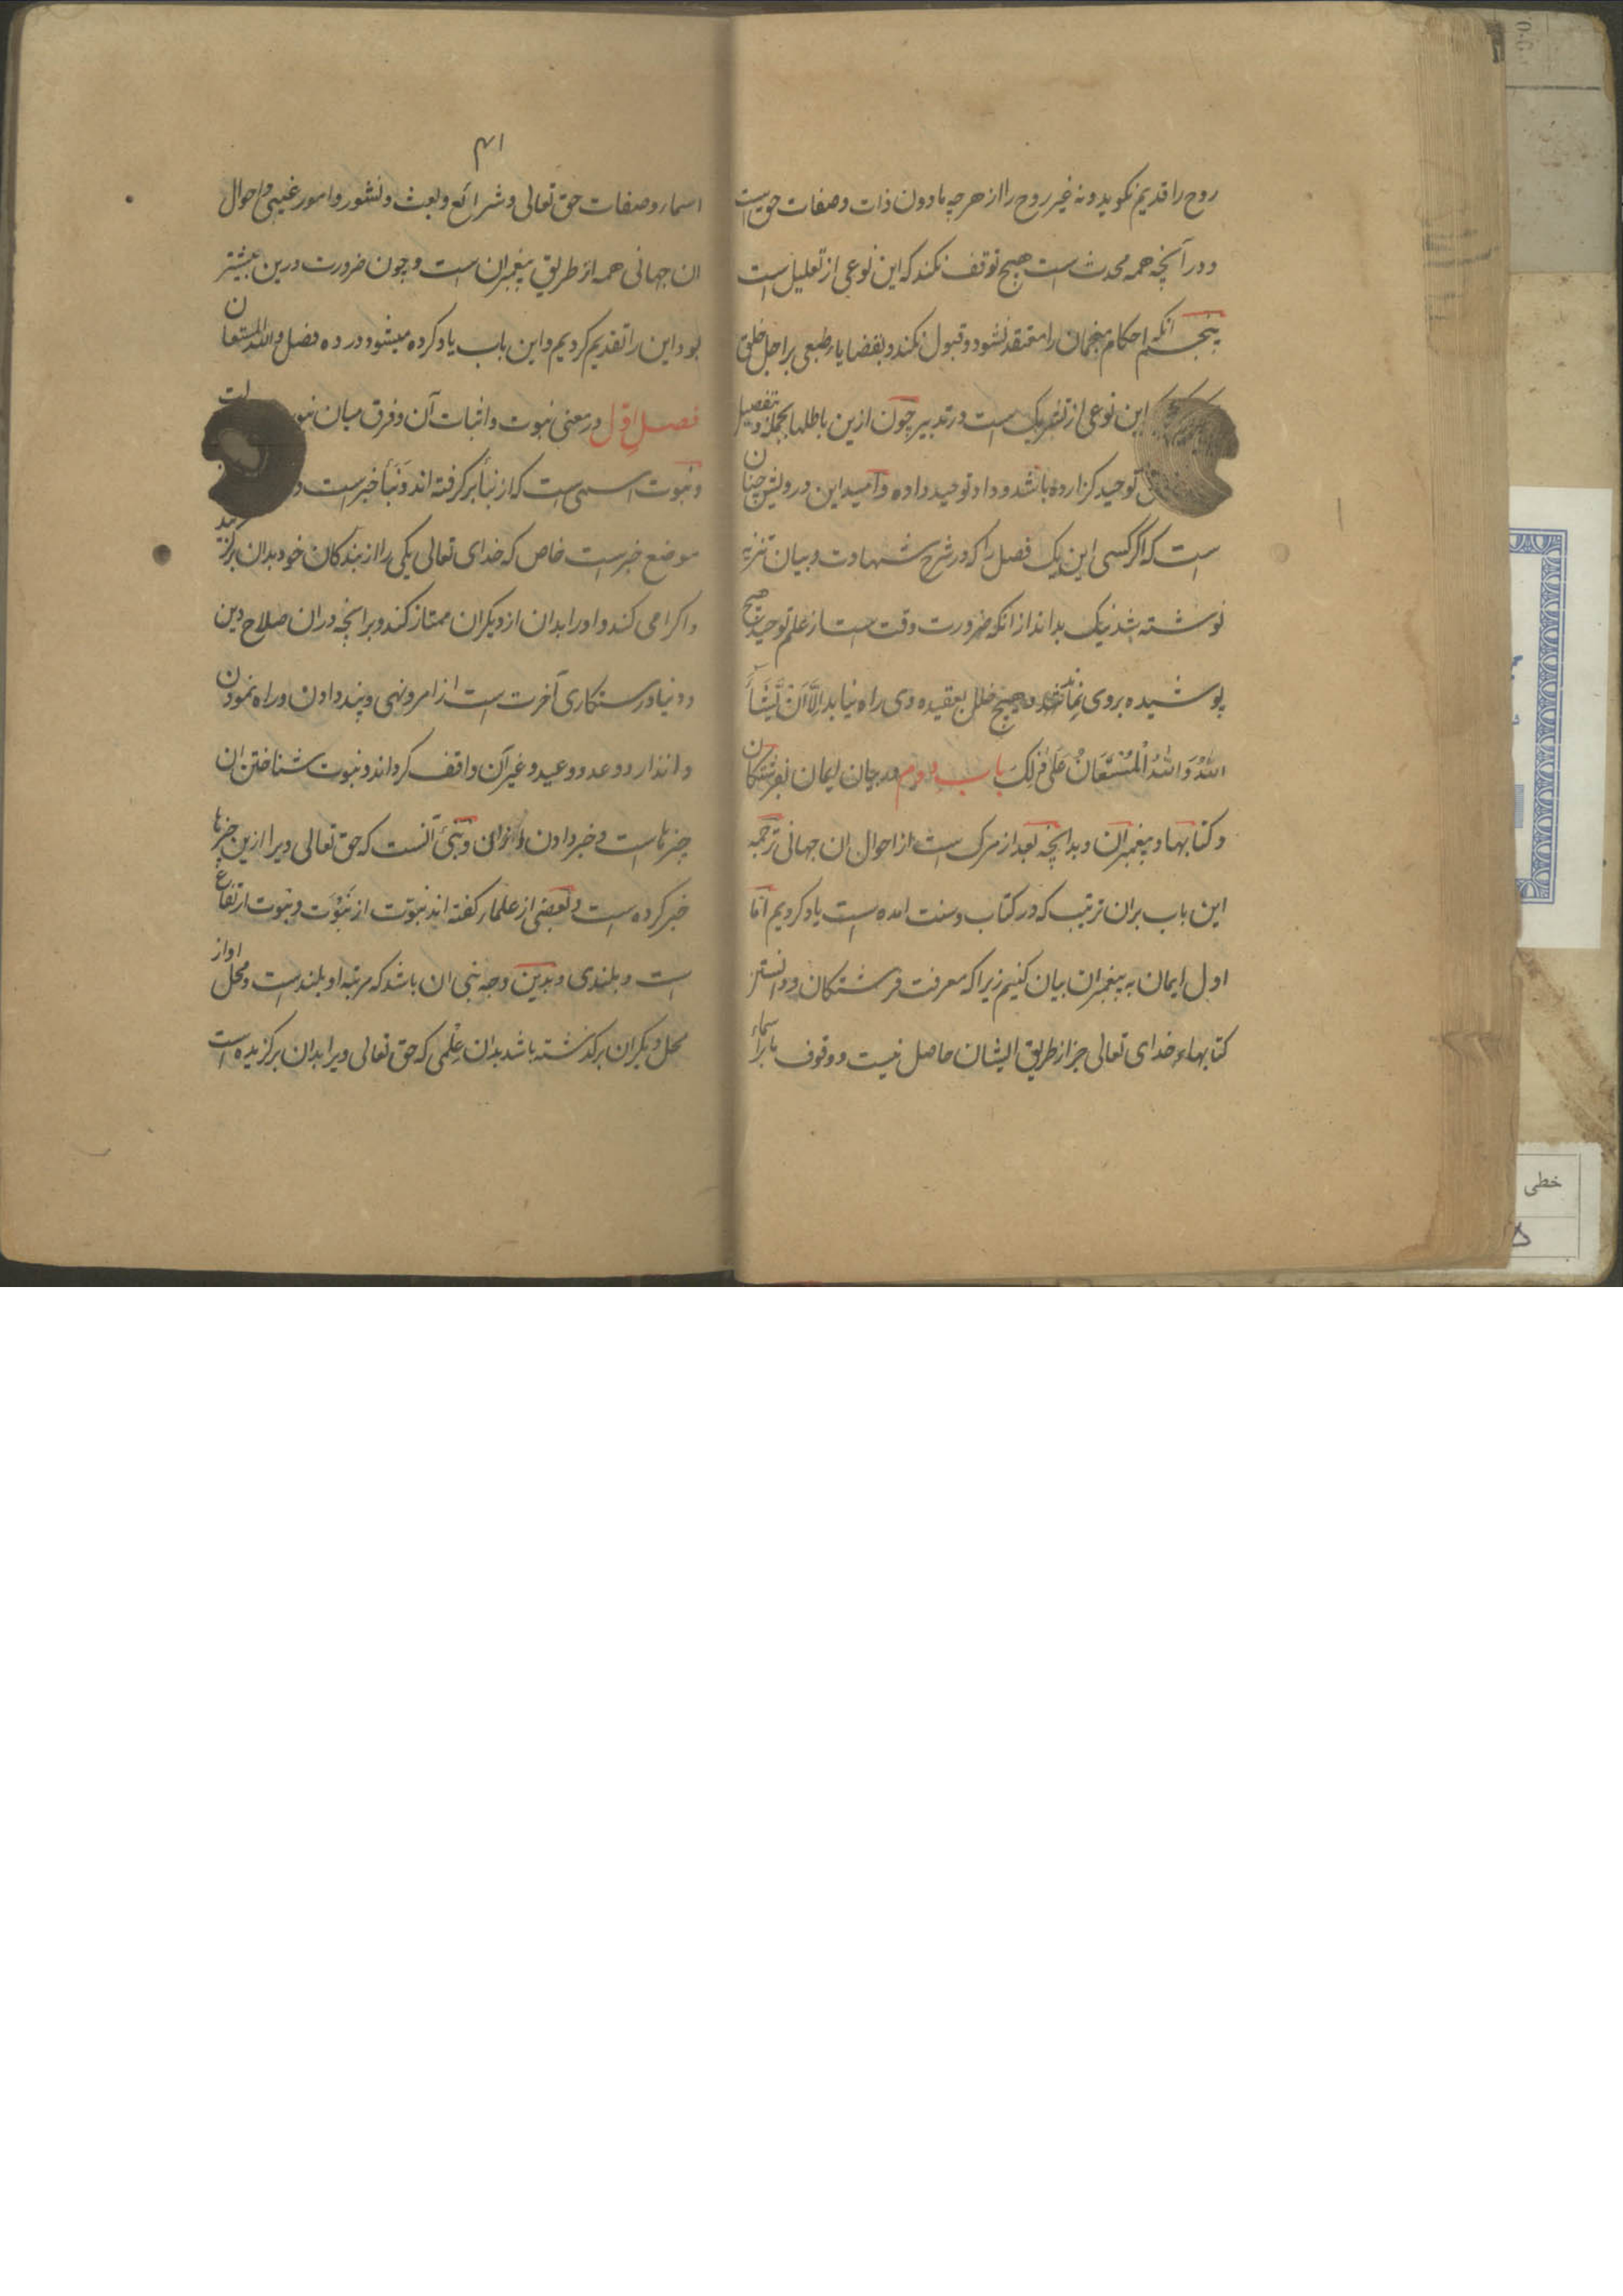 روح را قدیم نکوید و نه غیر روح را از هر چه مادون ذات و صفات حق است
و در آنچه همه محدث است هیچ توقف نکند که این نوعی از تعلیل است
پنجم انکه احکام منجمان را معتقد نشود و قبول نکند و بقضایاء طبعی برا جل خلق
این نوعی از تشریک است در تدبیر چون ازین باطلها بجمله و تفصیل
توحید کزارده باشد و داد توحید داده و امید این درویش چنان
است که اکر کسی این یک فصل را که در شرح شهادت و بیان تنزیه
نوشته شد نیک بداند از انکه ضرورت وقت است از علم توحید هیچ
پوشیده بروی نماند و هیچ خلل بعقیده وی راه نیابد الّا اَنْ یَّشَآءَ
اللهُ وَ اللهُ الْمُسْتَعَانُ عَلٰی ذٰلِکَ باب دوم در بیان ایمان بفرشتکان
و کتابها و پیغمبران و بدانچه بعد از مرک است از احوال ان جهانی ترجمه
این باب بران ترتیب که در کتاب و سنت امده است یاد کردیم اما
اول ایمان به پیغمبران بیان کنیم زیرا که معرفت فرشتکان و دانستن
کتابهاء خدای تعالی جز از طریق ایشان حاصل نیست و وقوف بر اسماء
۴۱
اسماء و صفات حق تعالی و شرائع و بعث و نشور و امور غیبی و احوال
ان جهانی همه از طریق پیغمبران است و چون ضرورت درین بیشتر
بود این را تقدیم کردیم و این باب یاد کرده میشود در ده فصل و الله المستعان
فصلِ اوّل در معنی نبوت و اثبات آن و فرق میان
و نبوت اسمی است که از نبأ بر کرفته اند و نَبَأ خبر است و
موضع خبر است خاص که خدای تعالی یکی را از بندکان خود بدان برکزیند
و اکرامی کند و او را بدان از دیکران ممتاز کند و برانچه دران صلاح دین
و دنیا و رستکاری آخرت است از امر و نهی و پند دادن و راه نمودن
و انذار و وعد و وعید و غیر آن واقف کرداند و نبوت شناختن ان
چیزهاست و خبر دادن و نبی آنست که حق تعالی ویرا ازین چیزها
خبر کرده است و بعضی از علماء کفته اند نبوّت از نَبْوَت و نبوت ارتفاع
است و بلندی و بدین وجه نبی ان باشد که مرتبه او بلند است و محل او از
محل دیکران برکذشته باشد بدان عِلْمی که حق تعالی ویرا بدان برکزیده است
خطی